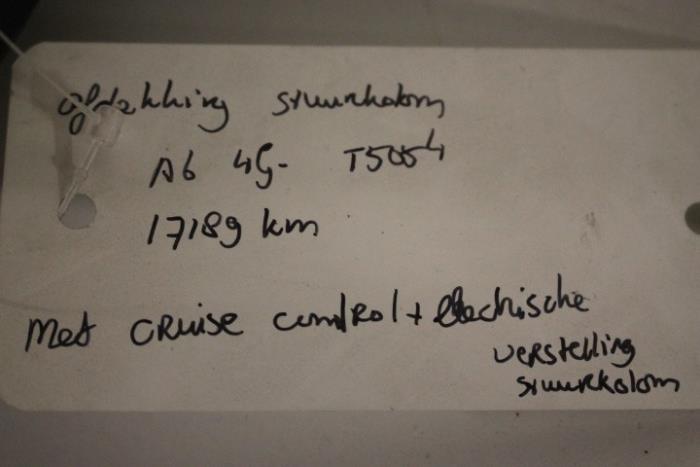 afdekking stuurkolom
A6 4G- T5054
17189 km
Met CRUISE control + electrische
verstelling
stuurkolom